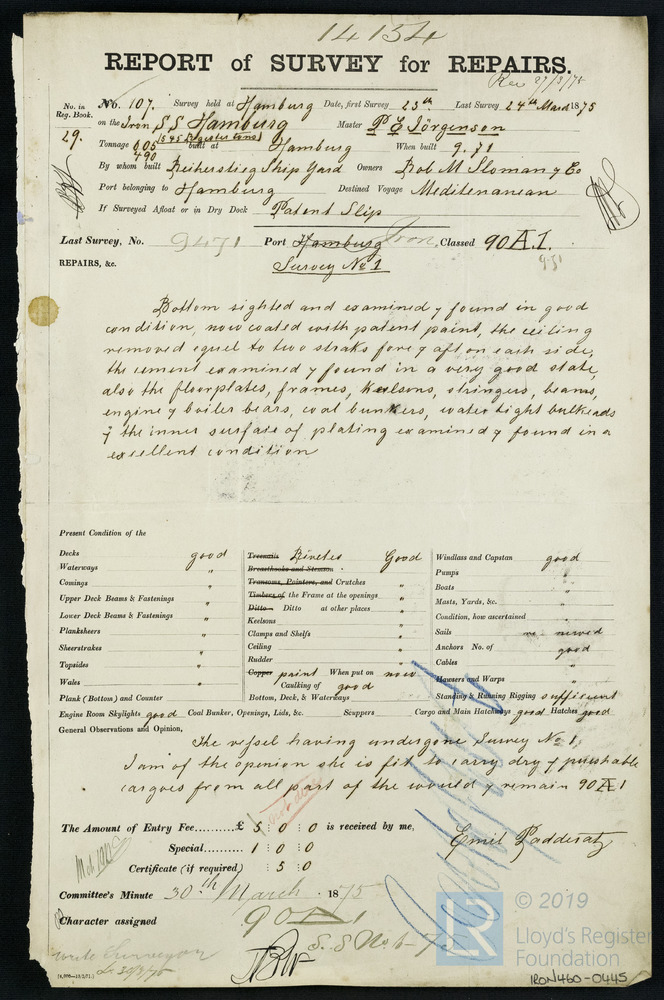 14134
REPORT of SURVEY for REPAIRS.
Rec 27/3/75
No. in Reg. Book. No. 107. Survey held at Hamburg Date, first Survey 23th Last Survey 24th March 1875
29. on the Iron SS Hamburg Master P E Jörgenson
Tonnage 605 490 (545 Register tons) built at Hamburg When built 9.71
By whom built Reiherstieg Ship Yard Owners Rob M Sloman y Co
Port belonging to Hamburg Destined Voyage Mediterranean
If Surveyed Afloat or in Dry Dock Patent Slip
Last Survey, No. 9471 Port Hamburg Iron, Classed 90 A.1.
9-71
REPAIRS, &c. Survey No 1
Bottom sighted and examined y found in good
condition, now coated with patent paint, the ceiling
removed equel to two straks fore y aft on each side,
the cement examined y found in a very good state,
also the floorplates, frames, keelsons, stringers, beams,
engine y boiler bears, coal bunkers, water tight bulkeads
y the inner surfase of plating examined y found in a
exsellent condition
Present Condition of the
Decks good
Waterways "
Comings "
Upper Deck Beams & Fastenings "
Lower Deck Beams & Fastenings "
Planksheers "
Sheerstrakes "
Topsides "
Wales "
Plank (Bottom) and Counter
Treenails Rivetes Good
Breasthooks and Stemson "
Transoms, Pointers, and Crutches "
Timbers of the Frame at the openings "
Ditto Ditto at other places "
Keelsons "
Clamps and Shelfs "
Ceiling "
Rudder "
Copper paint When put on now
Caulking of good
Bottom, Deck, & Waterways
Windlass and Capstan good
Pumps "
Boats "
Masts, Yards, &c. "
Condition, how ascertained "
Sails renewed
Anchors No. of good
Cables "
Hawsers and Warps "
Standing & Running Rigging sufficient
Engine Room Skylights good Coal Bunker, Openings, Lids, &c. Scuppers Cargo and Main Hatchways good Hatches good
General Observations and Opinion,
The vessel having undergone Survey No 1,
I am of the opinion she is fit to carry dry y perishable
cargoes from all part of the would y remain 90 A 1
The Amount of Entry Fee £ 5 : 0 : 0 is received by me,
Special 1 : 0 : 0
Certificate (if required) 5 0
Emil Padderatz
Committee's Minute 30th March 1875
Character assigned 90 A 1
S.S No 1-75
write Surveyor
30/3/75
© 2019
Lloyd's Register
Foundation
IRON460-0445